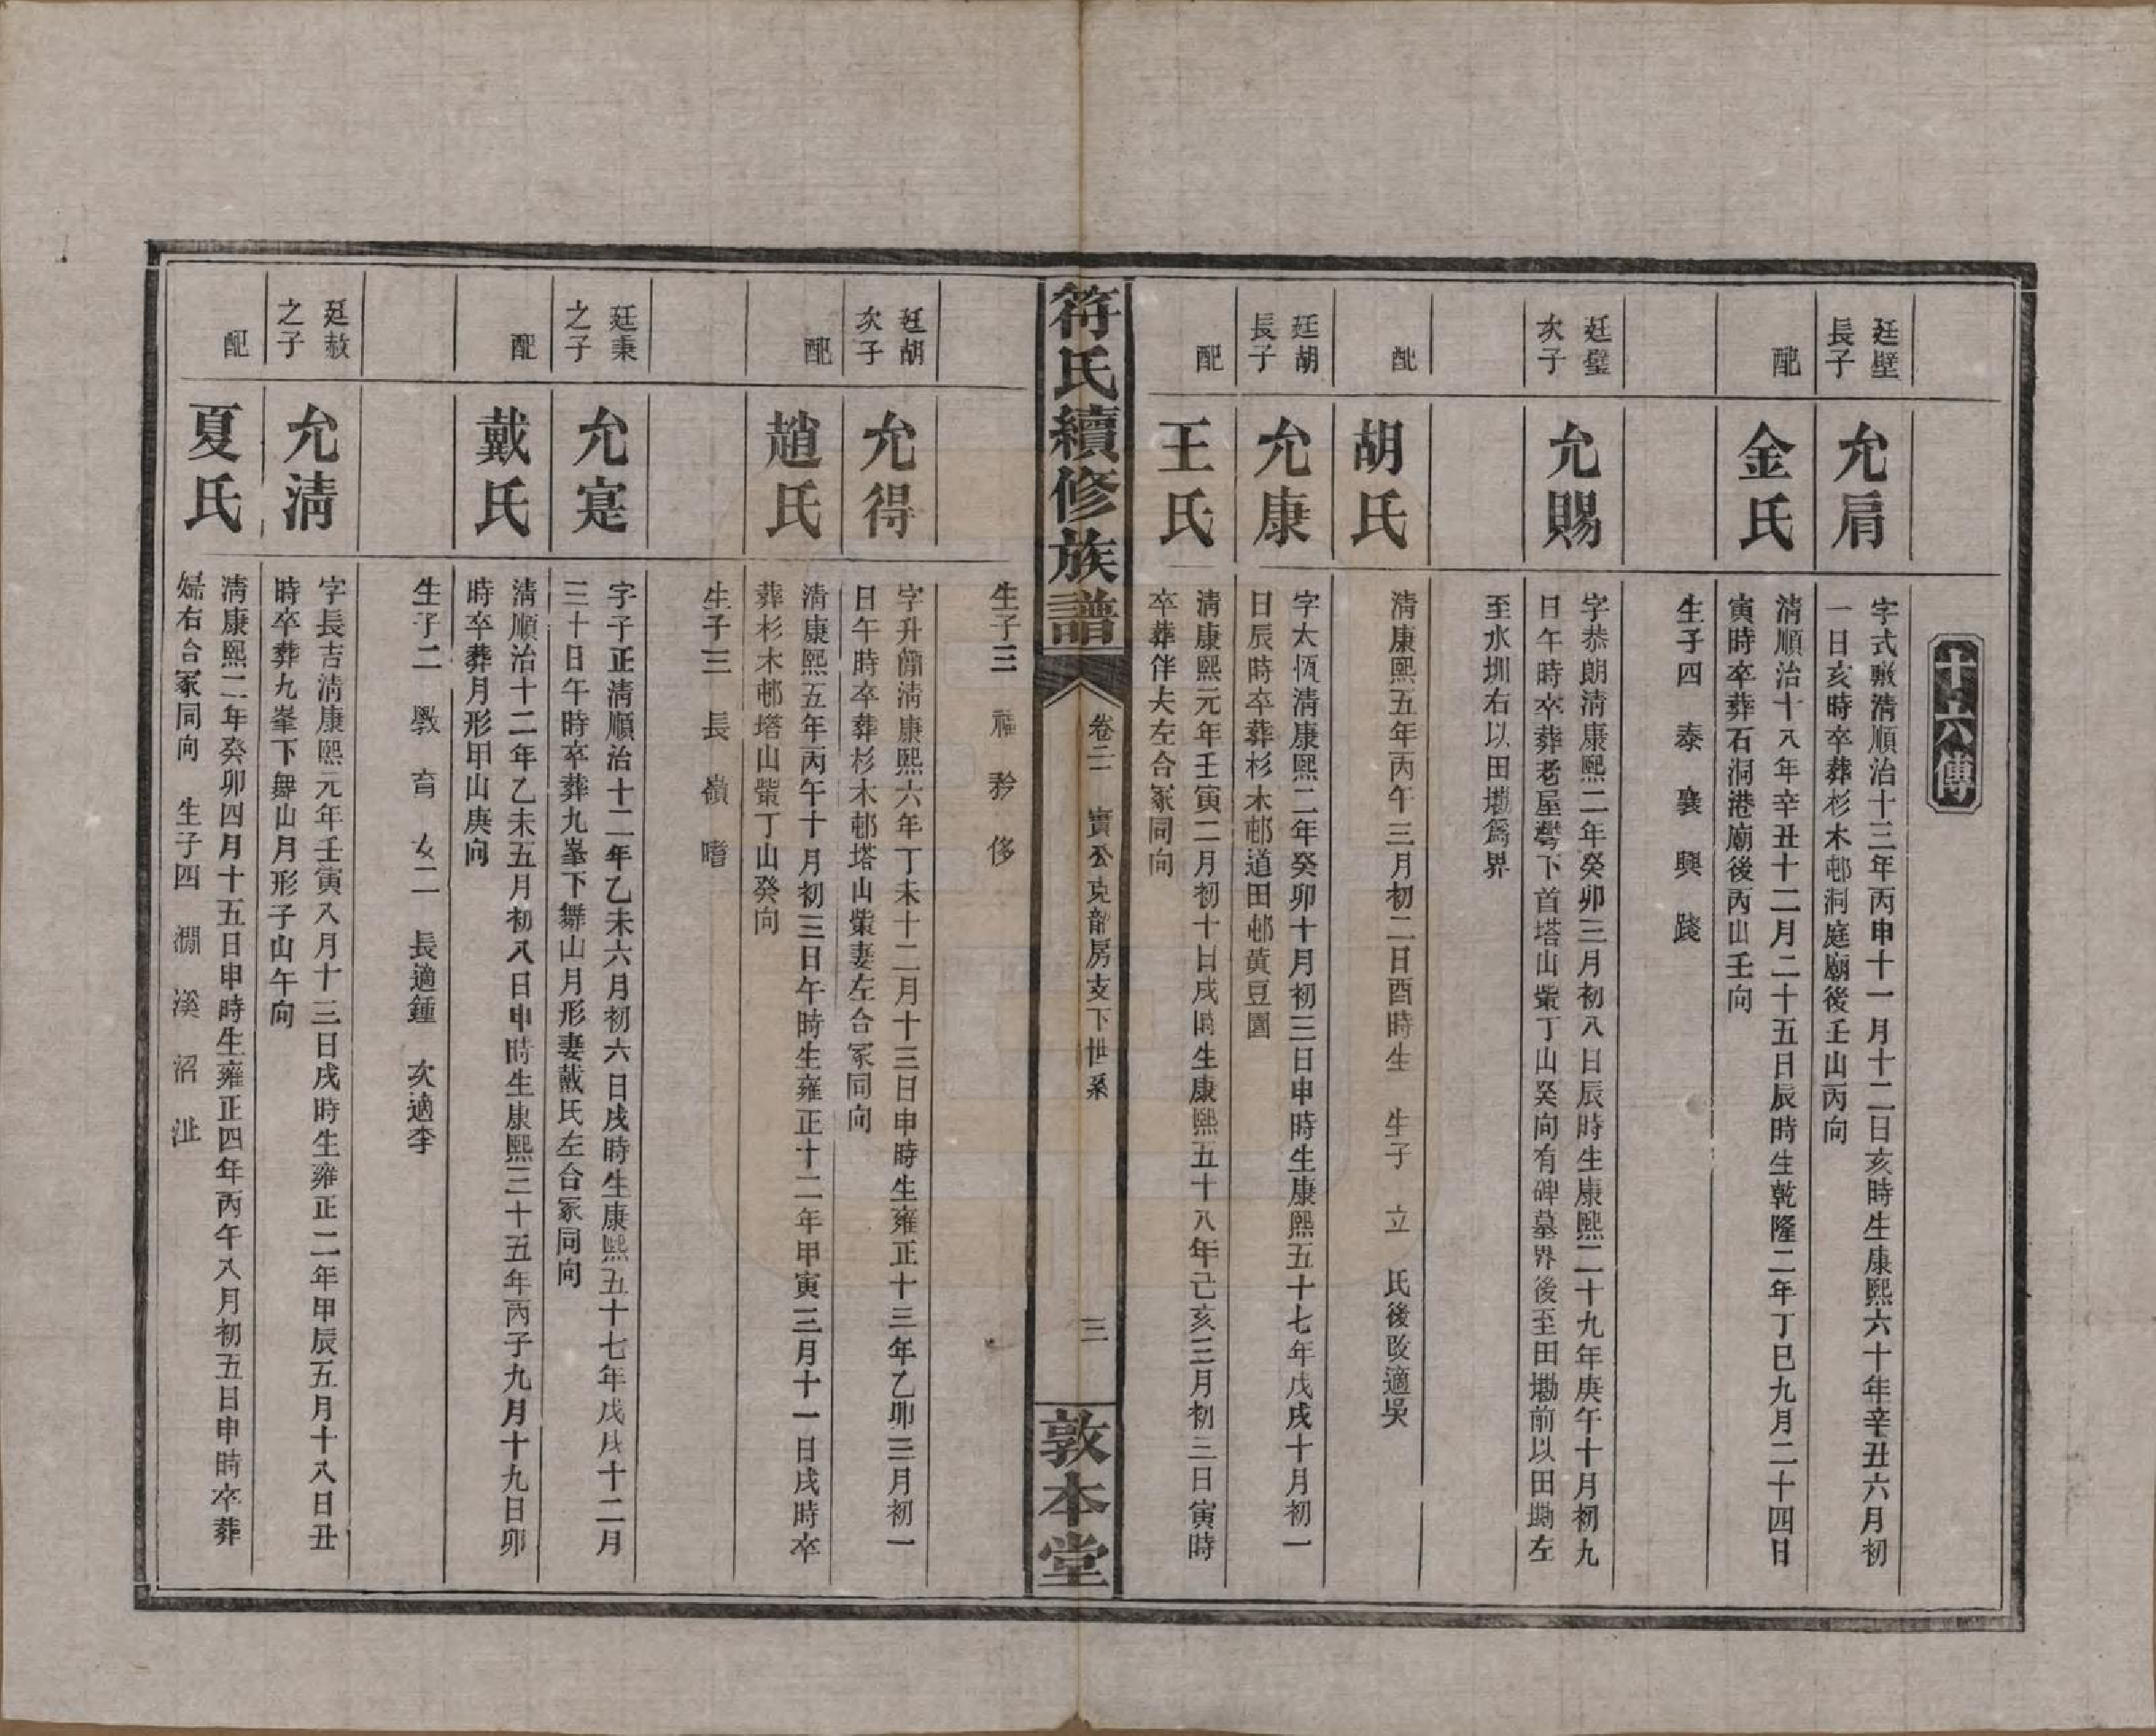 十六傳
廷壁
長子
允肩
字式敷清順治十三年丙申十一月十二日亥時生康熙六十年辛丑六月初
一日亥時卒葬杉木邨洞庭廟後壬山丙向
配
金氏
清順治十八年辛丑十二月二十五日辰時生乾隆二年丁巳九月二十四日
寅時卒葬石洞港廟後丙山壬向
生子四 泰 襄 興 踐
廷璧
次子
允賜
字恭朗清康熙二年癸卯三月初八日辰時生康熙二十九年庚午十月初九
日午時卒葬老屋灣下首塔山棠丁山癸向有碑墓界後至田墈前以田墈左
至水圳右以田墈爲界
配
胡氏
清康熙五年丙午三月初二日酉時生 生子 立 氏後改適吳
廷胡
長子
允康
字太恆清康熙二年癸卯十月初三日申時生康熙五十七年戊戌十月初一
日辰時卒葬杉木邨道田邨黃豆園
配
王氏
清康熙元年壬寅二月初十日戌時生康熙五十八年己亥三月初三日寅時
卒葬伴夫左合冢同向
符氏續修族譜
卷二 實公克韶房支下世系
三
敦本堂
生子三 福 矜 侈
廷胡
次子
允得
字升簡清康熙六年丁未十二月十三日申時生雍正十三年乙卯三月初一
日午時卒葬杉木邨塔山棠妻左合冢同向
配
趙氏
清康熙五年丙午十月初三日午時生雍正十二年甲寅三月十一日戌時卒
葬杉木邨塔山棠丁山癸向
生子三 長 嶺 嗜
廷秉
之子
允寔
字子正清順治十二年乙未六月初六日戌時生康熙五十七年戊戌十二月
三十日午時卒葬九峯下舞山月形妻戴氏左合冢同向
配
戴氏
清順治十二年乙未五月初八日申時生康熙三十五年丙子九月十九日卯
時卒葬月形甲山庚向
生子二 斅 育 女二 長適鍾 次適李
廷赦
之子
允清
字長吉清康熙元年壬寅八月十三日戌時生雍正二年甲辰五月十八日丑
時卒葬九峯下舞山月形子山午向
配
夏氏
清康熙二年癸卯四月十五日申時生雍正四年丙午八月初五日申時卒葬
婦右合冢同向 生子四 淵 溪 沼 沚